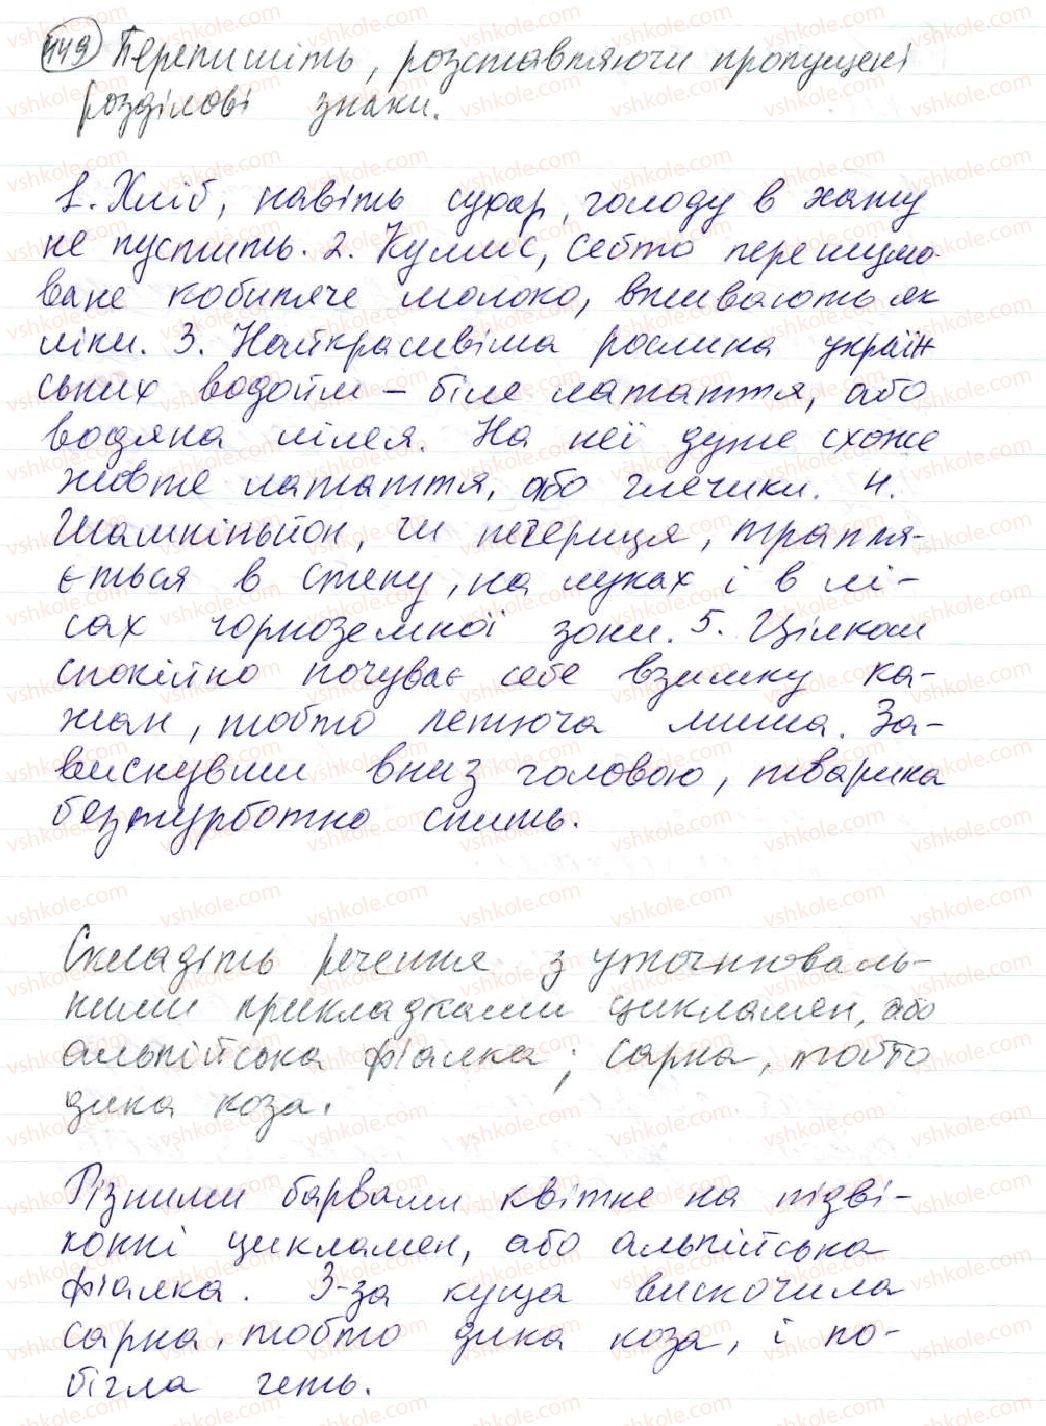 449 Перепишіть, розставляючи пропущені
розділові знаки.
1. Хліб, навіть сухар, голоду в хату
не пустить. 2. Кумис, себто перешумо-
ване кобиляче молоко, вживають як
ліки. 3. Найкрасивіша рослина україн
ських водойм – біле латаття, або
водяна лілея. На неї дуже схоже
жовте латаття, або глечики. 4.
Шампіньйон, чи печериця, трапля-
ється в степу, на луках і в лі-
сах чорноземної зони. 5. Цілком
спокійно почуває себе взимку ка-
жан, тобто летюча миша. За-
вискувши вниз головою, тварина
безтурботно спить.
Складіть речення з уточнюваль-
ними прикладками цикламен, або
альпійська фіалка; сарна, тобто
дика коза.
Різними барвами квітне на підві-
конні цикламен, або альпійська
фіалка. З-за куща вискочила
сарна, тобто дика коза, і по-
бігла геть.